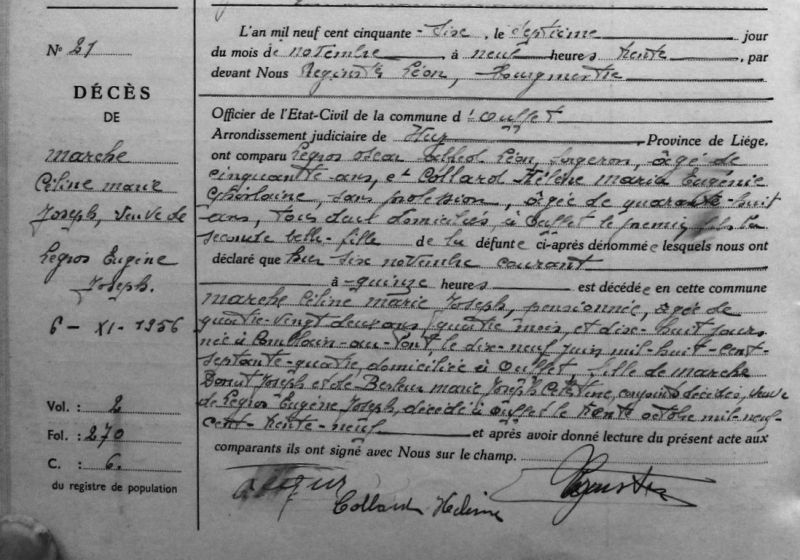 N° 21
DÉCÈS
DE
Marche
Céline Marie
Joseph, veuve de
Legros Eugène
Joseph.
6 - XI - 1956
Vol. : 2
Fol. : 270
C. : 6.
du registre de population
L'an mil neuf cent cinquante-six, le septième jour
du mois de novembre, à neuf heures trente, par
devant Nous Léon, Bourgmestre
Officier de l'Etat-Civil de la commune d'Ouffet
Arrondissement judiciaire de Huy, Province de Liége,
ont comparu Legros Oscar Léon, forgeron, âgé de
cinquante ans, et Collard Hélène Maria Eugénie
Ghislaine, sans profession, âgée de quarante-huit
ans, tous deux domiciliés à Ouffet le premier fils la
seconde belle-fille de la défunte ci-après dénommée lesquels nous ont
déclaré que hier six novembre courant
à quinze heures est décédée en cette commune
Marche Céline Marie Joseph, pensionnée, âgée de
quatre-vingt deux ans quatre mois, et dix-huit jours
née à Comblain-au-Pont, le dix-neuf juin mil-huit-cent-
septante-quatre, domiciliée à Ouffet, fille de Marche
Donat Joseph et de Marie Joseph Célestine, conjoints décédés, veuve
de Legros Eugène Joseph, décédé à Ouffet le trente octobre mil-neuf-
cent-trente-neuf et après avoir donné lecture du présent acte aux
comparants ils ont signé avec Nous sur le champ.
Collard Hélène